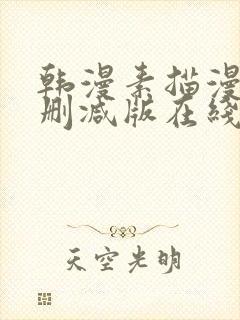 韩漫素描漫
删减版在线
天空光明